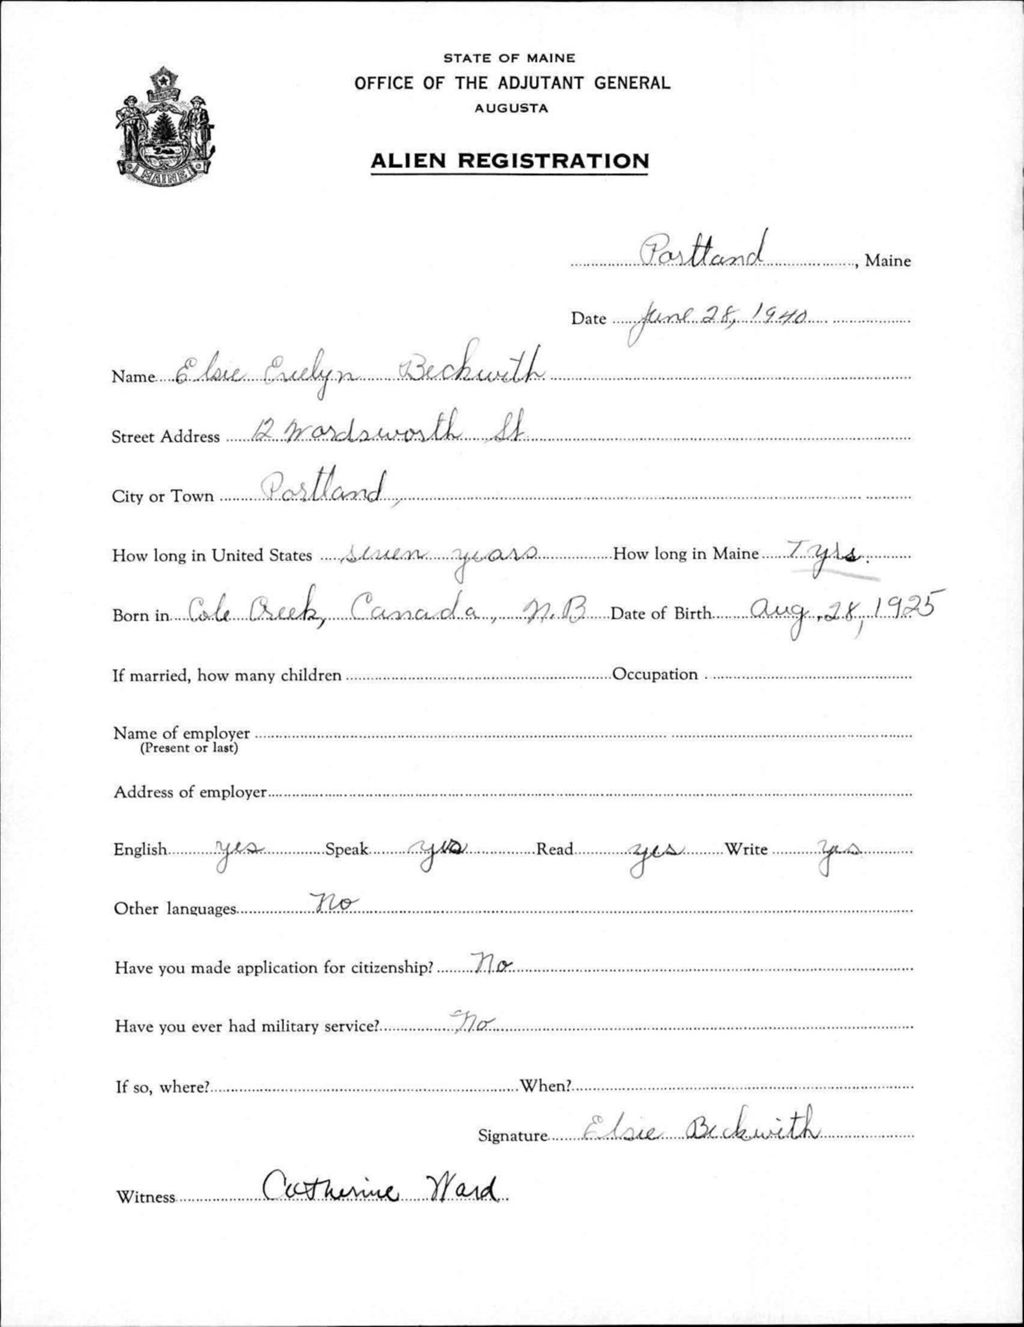 STATE OF MAINE
OFFICE OF THE ADJUTANT GENERAL
AUGUSTA
ALIEN REGISTRATION
MAINE
Portland, Maine
Date June 28, 1940
Name Elsie Evelyn Beckwith
Street Address 12 Wordsworth St
City or Town Portland,
How long in United States seven years How long in Maine 7 yrs.
Born in Cole Creek, Canada, N.B Date of Birth Aug. 28, 1925
If married, how many children Occupation
Name of employer
(Present or last)
Address of employer
English yes Speak yes Read yes Write yes
Other languages No
Have you made application for citizenship? No
Have you ever had military service? No
If so, where? When?
Signature Elsie Beckwith
Witness Catherine Ward